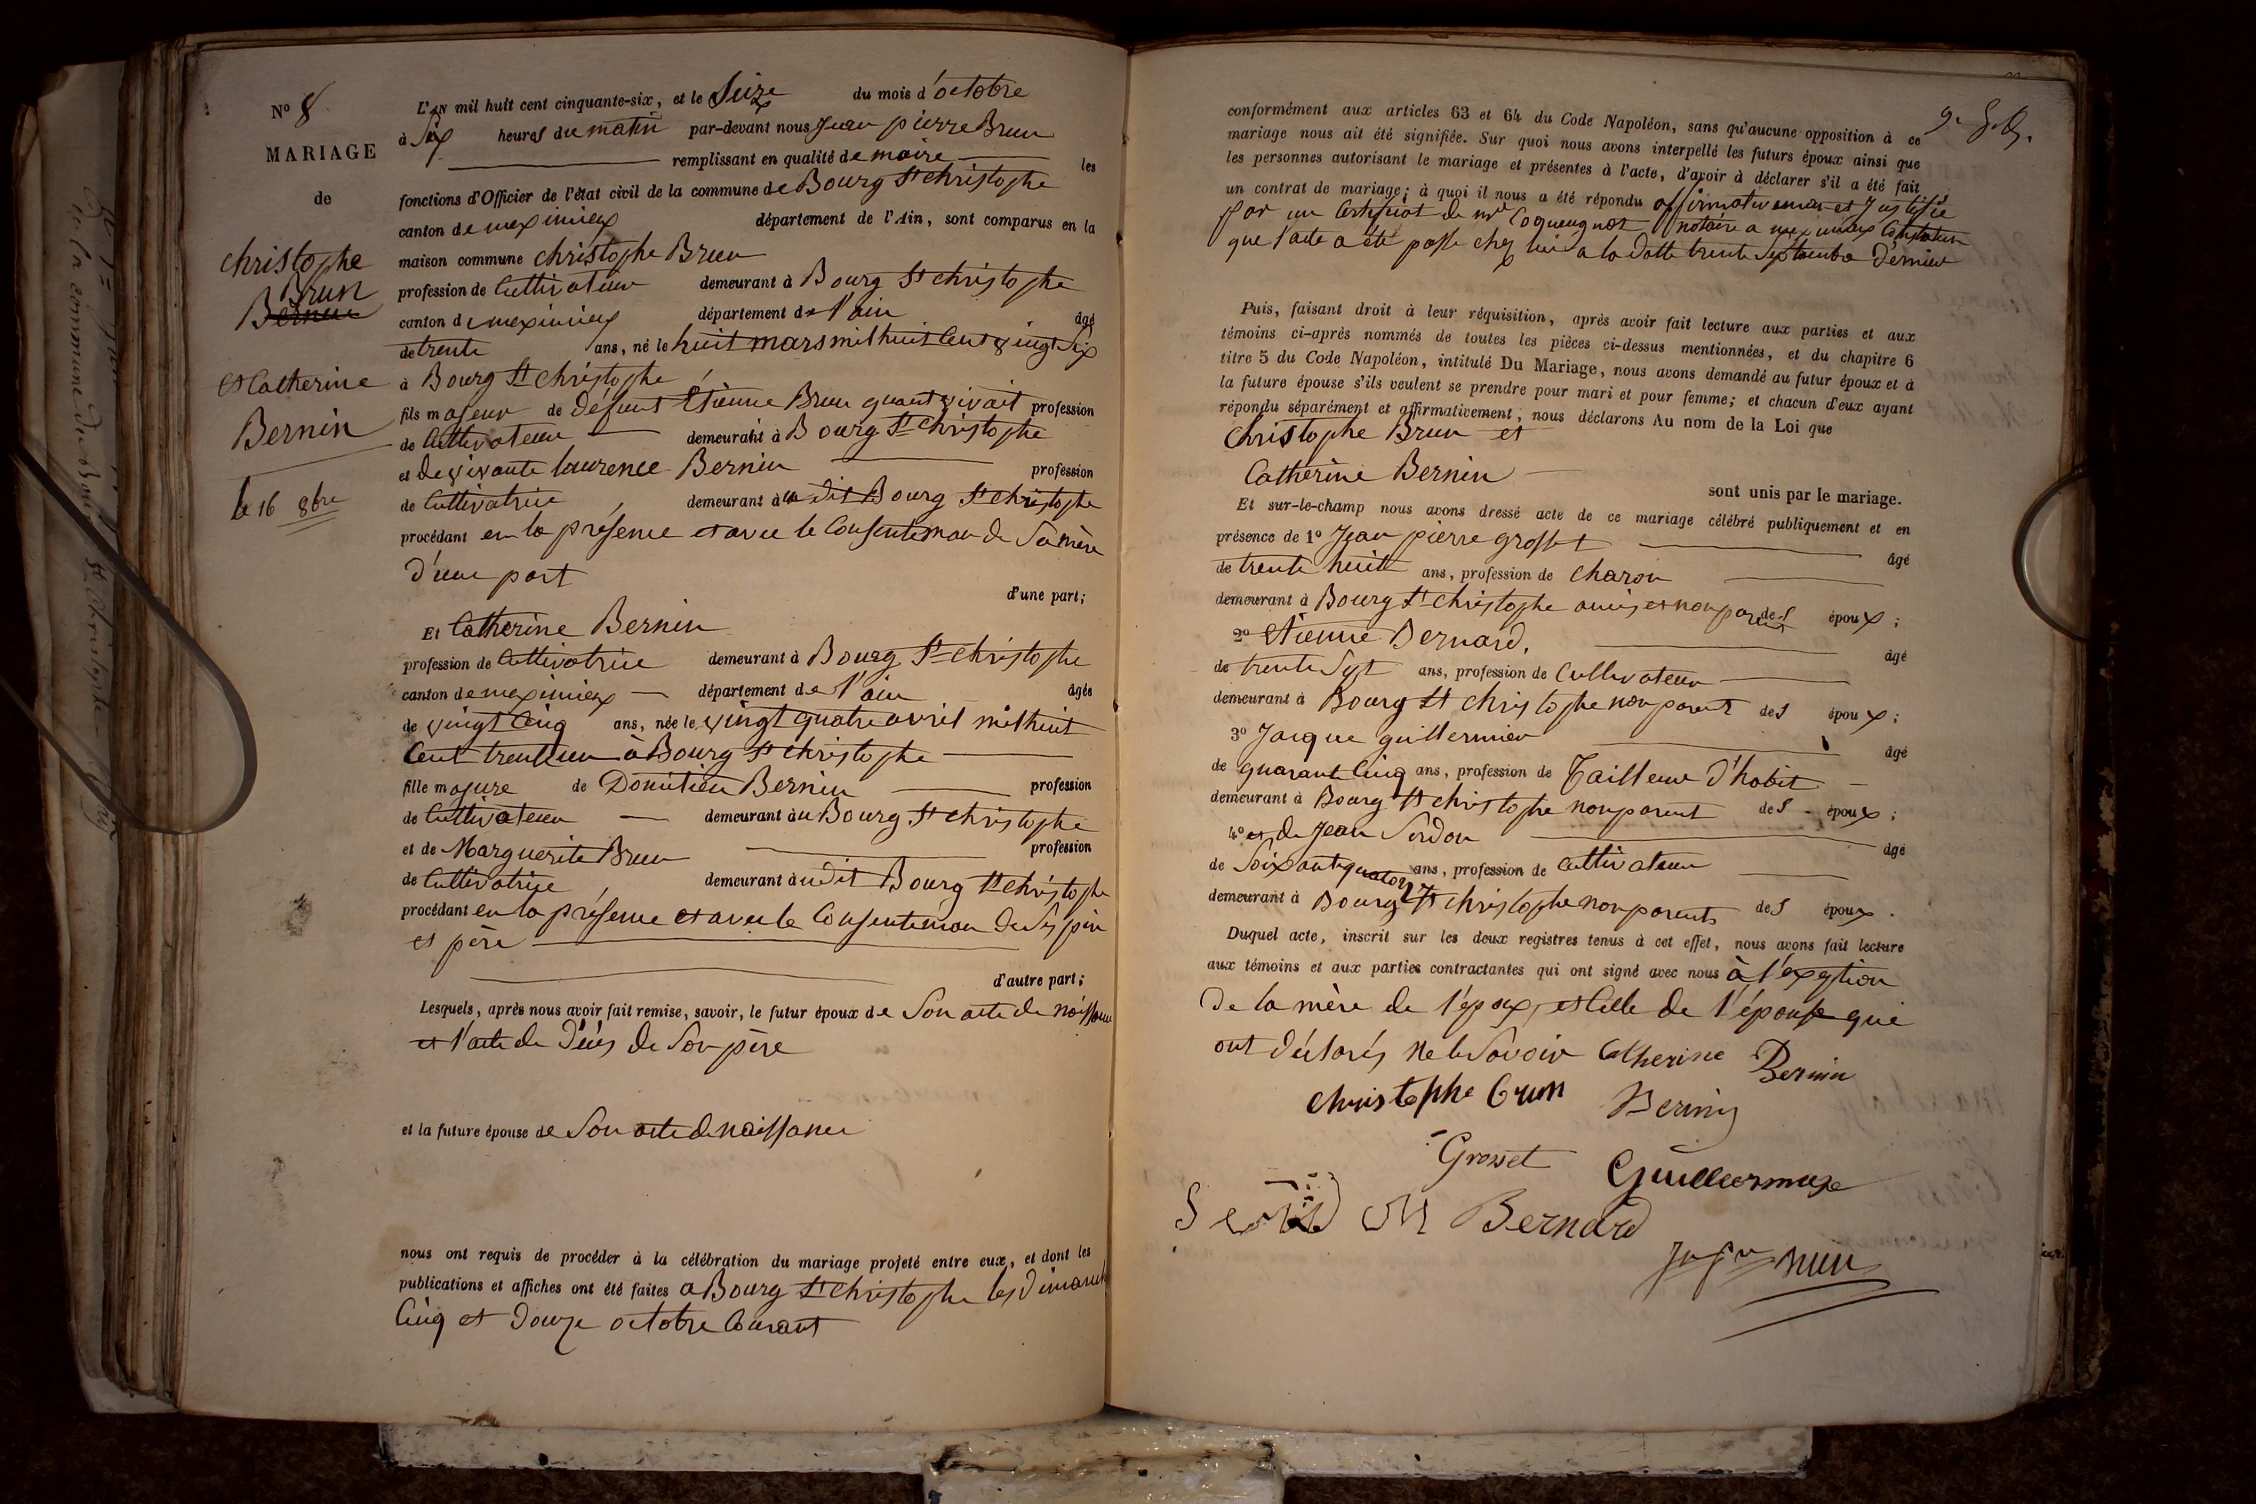 N° 8
MARIAGE
de
christophe
Brun
Bernin
et Catherine
Bernin
le 16 8bre
L'AN mil huit cent cinquante-six, et le Seize du mois d'octobre
à Six heures du matin par-devant nous Jean pierre Brun
remplissant en qualité de maire les
fonctions d'Officier de l'état civil de la commune de Bourg St christophe
canton de meximieux département de l'Ain, sont comparus en la
maison commune christophe Brun
profession de Cultivateur demeurant à Bourg St christophe
canton de meximieux département de l'ain âgé
de trente ans, né le huit mars mil huit Cent vingt Six
à Bourg St christophe
fils majeur de défunt Etienne Brun quant vivait profession
de Cultivateur demeurant à Bourg St christophe
et de vivante laurence Bernin profession
de Cultivatrice demeurant à u dit Bourg St christophe
procédant en la présence et avec le Consenteman de Sa mère
d'une part
d'une part;
Et Catherine Bernin
profession de Cultivatrice demeurant à Bourg St christophe
canton de meximieux département de l'ain âgée
de vingt Cinq ans, née le vingt quatre avril mil huit
Cent trente un à Bourg St christophe
fille majure de Domitien Bernin profession
de Cultivateur demeurant à u Bourg St christophe
et de Marguerite Brun profession
de Cultivatrice demeurant à udit Bourg St christophe
procédant en la présence et avec le Consenteman de Ses père
et père
d'autre part;
Lesquels, après nous avoir fait remise, savoir, le futur époux de Son acte de naissance
et l'acte de Décès de Son père
et la future épouse de Son acte de naissance
nous ont requis de procéder à la célébration du mariage projeté entre eux, et dont les
publications et affiches ont été faites a Bourg St christophe les dimanche
Cinq et douze octobre Courant
conformément aux articles 63 et 64 du Code Napoléon, sans qu'aucune opposition à ce
mariage nous ait été signifiée. Sur quoi nous avons interpellé les futurs époux ainsi que
les personnes autorisant le mariage et présentes à l'acte, d'avoir à déclarer s'il a été fait
un contrat de mariage; à quoi il nous a été répondu affirmativeman et Justifié
par un Certificat de mre notaire a meximieux
que l'acte a été passé chez lui a la datte trente Septembre dernier
Puis, faisant droit à leur réquisition, après avoir fait lecture aux parties et aux
témoins ci-après nommés de toutes les pièces ci-dessus mentionnées, et du chapitre 6
titre 5 du Code Napoléon, intitulé Du Mariage, nous avons demandé au futur époux et à
la future épouse s'ils veulent se prendre pour mari et pour femme; et chacun d'eux ayant
répondu séparément et affirmativement, nous déclarons Au nom de la Loi que
christophe Brun et
Catherine Bernin
sont unis par le mariage.
Et sur-le-champ nous avons dressé acte de ce mariage célébré publiquement et en
présence de 1° Jean pierre grosset âgé
de trente huit ans, profession de charon
demeurant à Bourg St christophe amis et non parent des époux;
2° Etienne Bernard, âgé
de trente Sept ans, profession de Cultivateur
demeurant à Bourg St christophe non parent des époux;
3° Jacque guillermier âgé
de quarant Cinq ans, profession de Tailleur d'habit
demeurant à Bourg St christophe non parent des époux;
4° et de Jean Serdon âgé
de Soixante quatorze ans, profession de Cultivateur
demeurant à Bourg St christophe non parents des époux.
Duquel acte, inscrit sur les deux registres tenus à cet effet, nous avons fait lecture
aux témoins et aux parties contractantes qui ont signé avec nous à l'exeption
de la mère de l'époux, et Celle de l'épouse qui
ont déclarés ne le Savoir Catherine Bernin
christophe brun Bernin
Grosset Guillermoze
M Bernard